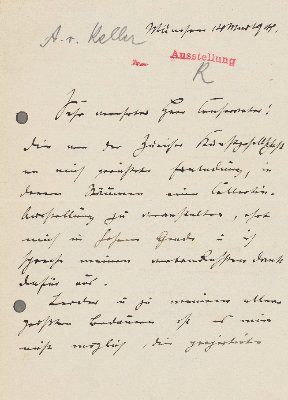 A. v. Keller
München 14 Mai 19
Ausstellung
K
Sehr verehrter Herr Conservator!
Die von der Züricher Kunstgesellschaft
an mich gerichtete Einladung, in
deren Räumen eine Collectiv-
Ausstellung zu veranstalten, ehrt
mich in hohem Grade u ich
spreche meinen verbindlichsten Dank
dafür aus.
Leider u zu meinem aller-
größten Bedauern ist es mir
nicht möglich, die projectirte